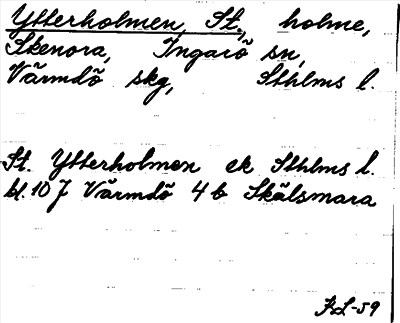 Ytterholmen, St., holme,
Skenora, Ingarö sn,
Värmdö skg, Sthlms l.
St. Ytterholmen ek Sthlms l.
bl. 107 Värmdö 4 b Skälsmara